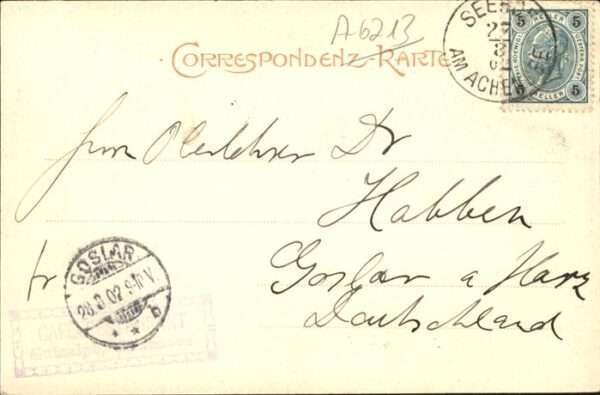 A-6213
CORRESPONDENZ-KARTE
SEEHOF
AM ACHENSEE
27
3
5 HELLER 5
5 HELLER 5
Herrn Oberlehrer Dr
Habben
fr
Goslar a Harz
Deutschland
GOSLAR
28.3.02.9-10V.
* * b